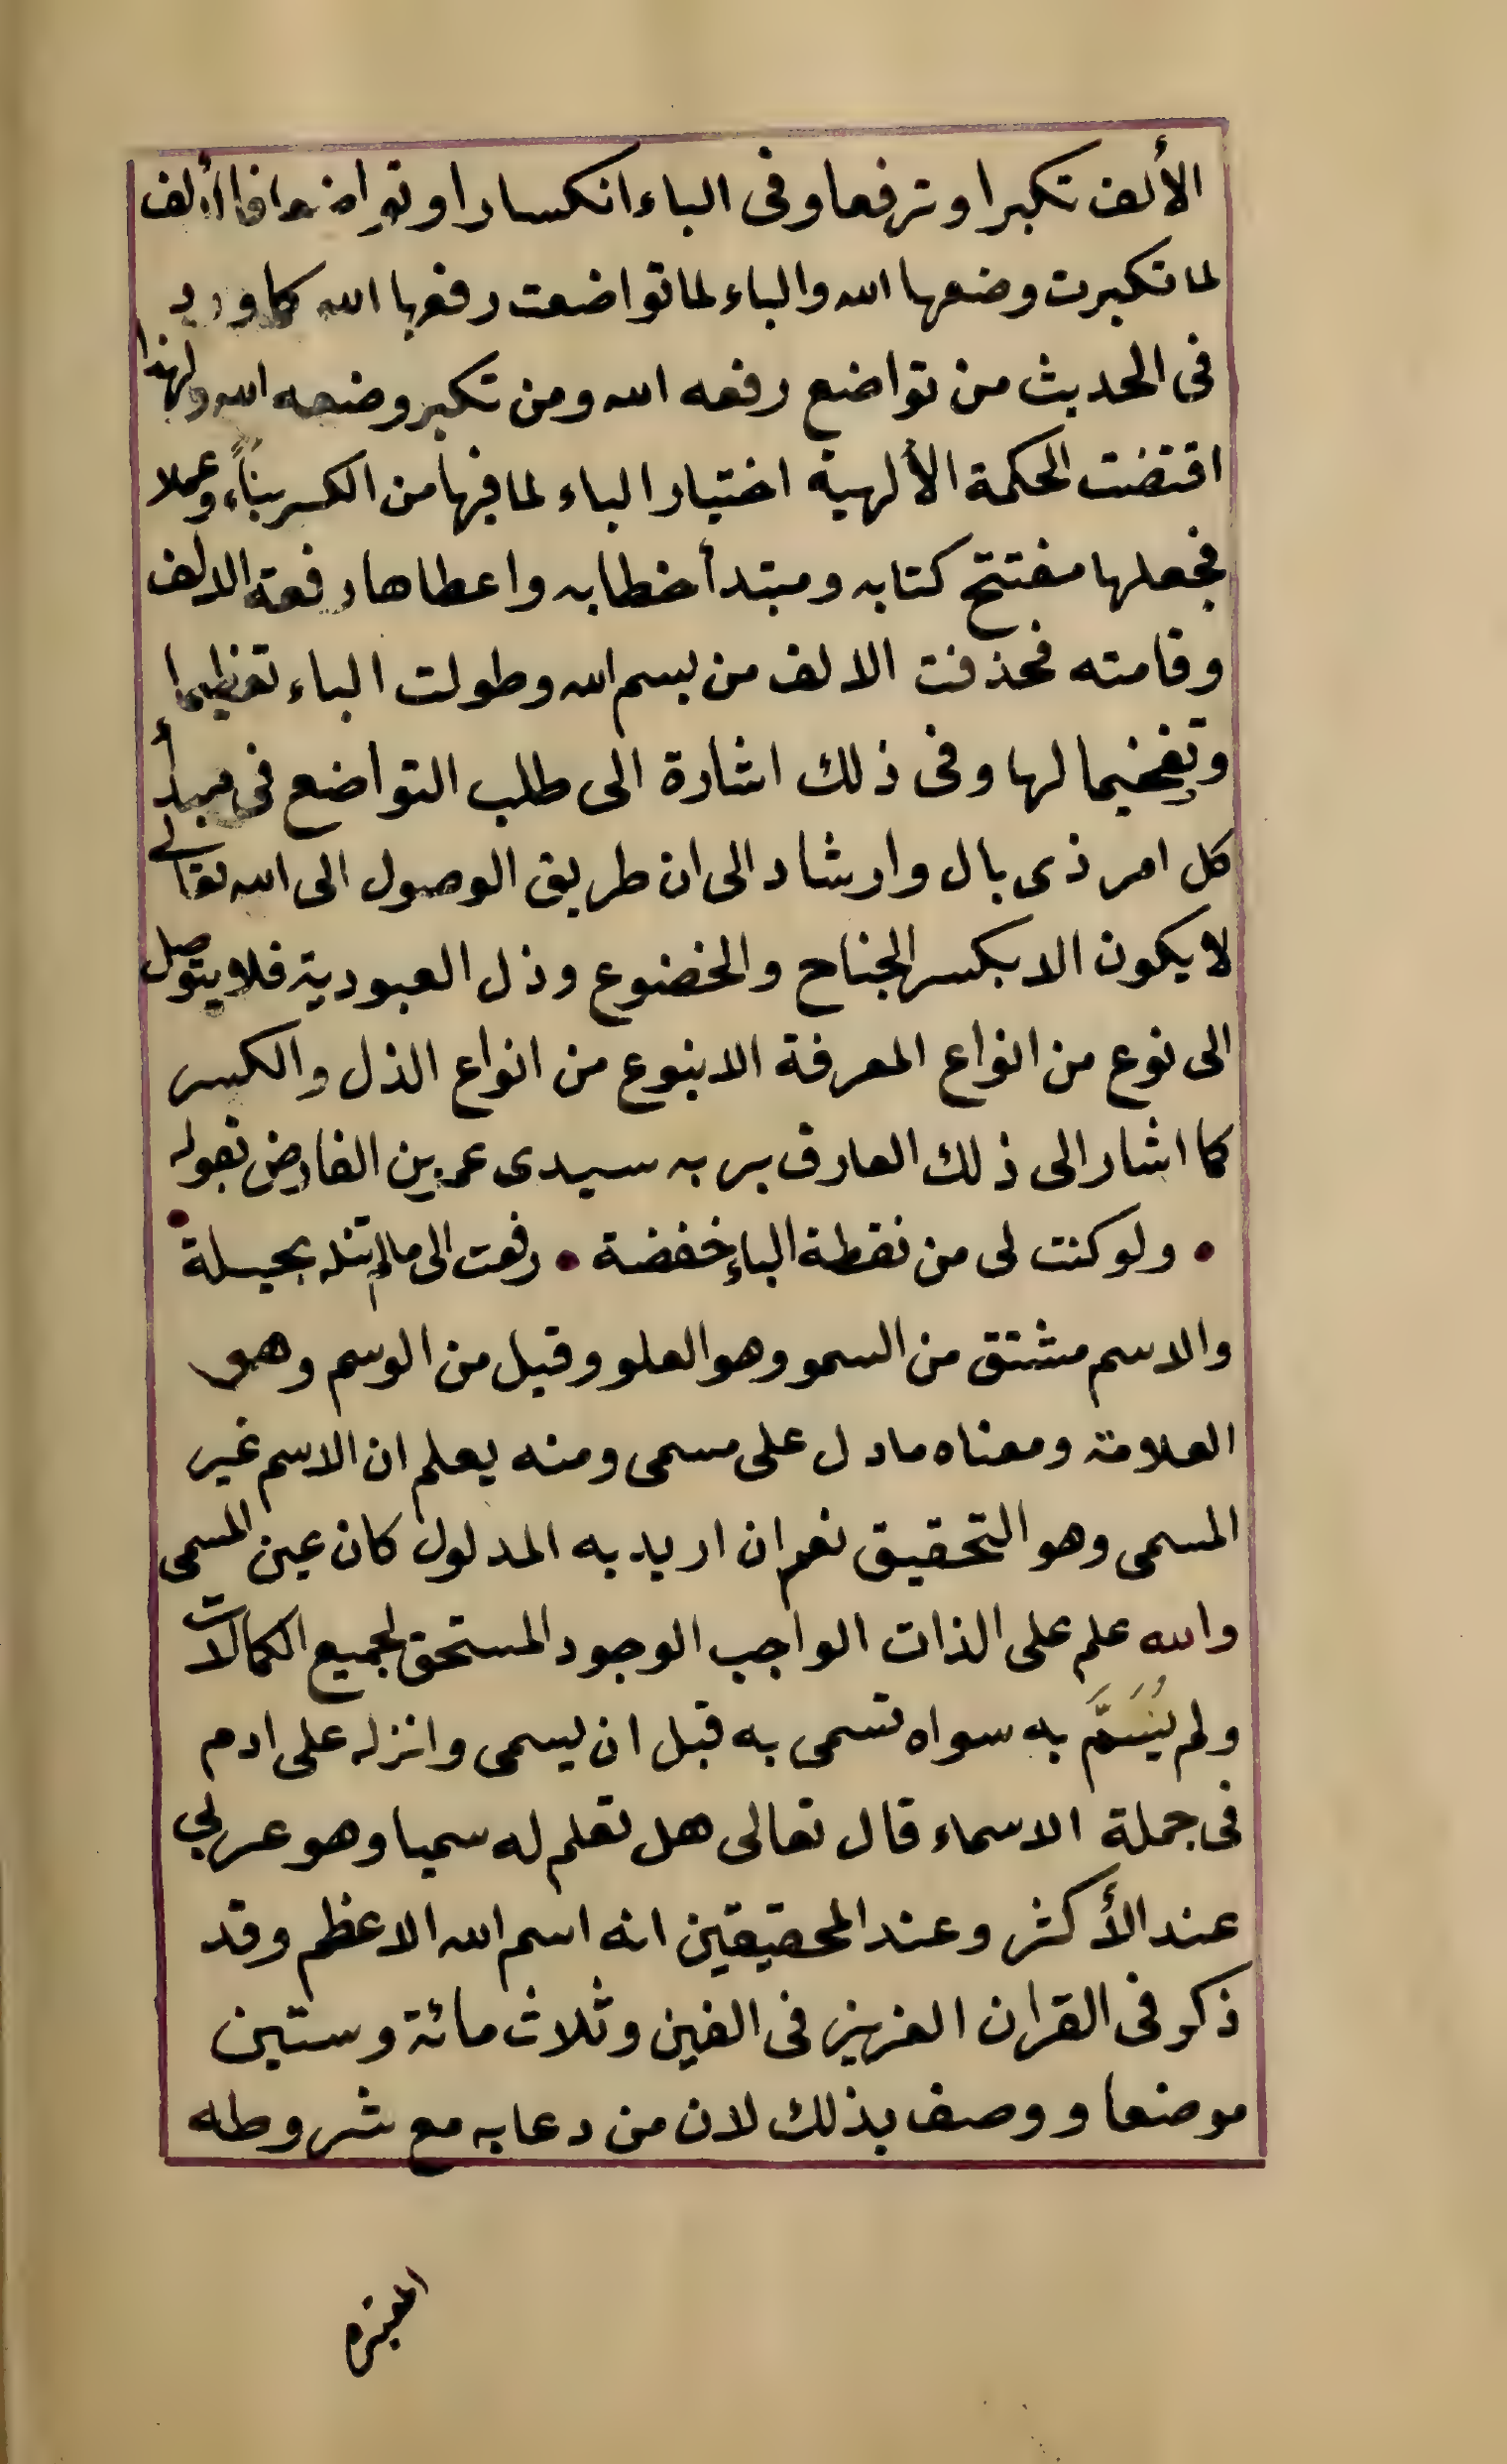 الألف تكبرا وترفعا وفى الباء انكسارا وتواضعا فالألف
لما تكبرت وضعها الله والباء لما تواضعت رفعها الله كما ورد
فى الحديث من تواضع رفعه الله ومن تكبر وضعه الله ولهذا
اقتضت الحكمة الألهية اختيار الباء لما فيها من الكسر بناًء وعملا
فجعلها مفتتح كتابه ومبتدأ خطابه واعطاها رفعة الالف
وقامته فحذفت الالف من بسم الله وطولت الباء تعظيما
وتفخيما لها وفى ذلك اشارة الى طلب التواضع فى مبدأ
كل امر ذى بال وارشاد الى ان طريق الوصول الى الله تعالى
لا يكون الا بكسر الجناح والخضوع وذل العبودية فلا يتوصل
الى نوع من انواع المعرفة الا بنوع من انواع الذل والكسر
كما اشار الى ذلك العارف بربه سيدى عمر بن الفارض بقوله
• ولو كنت لى من نقطة الباءِ خفضة • رفعت الى مالم تنله بحيلة •
والاسم مشتق من السمو وهو العلو وقيل من الوسم وهو
العلامة ومعناه مادل على مسمى ومنه يعلم ان الاسم غير
المسمى وهو التحقيق نعم ان اريد به المدلول كان عين المسمى
والله علم على الذات الواجب الوجود المستحق لجميع الكمالات
ولم يُسَمَّ به سواه تسمى به قبل ان يسمى وانزله على ادم
فى جملة الاسماء قال تعالى هل تعلم له سميا وهو عربي
عند الأكثر وعند المحقيقين انه اسم الله الاعظم وقد
ذكر فى القران العزيز فى الفين وثلاث مائة وستين
موضعا ووصف بذلك لان من دعا به مع شروطه